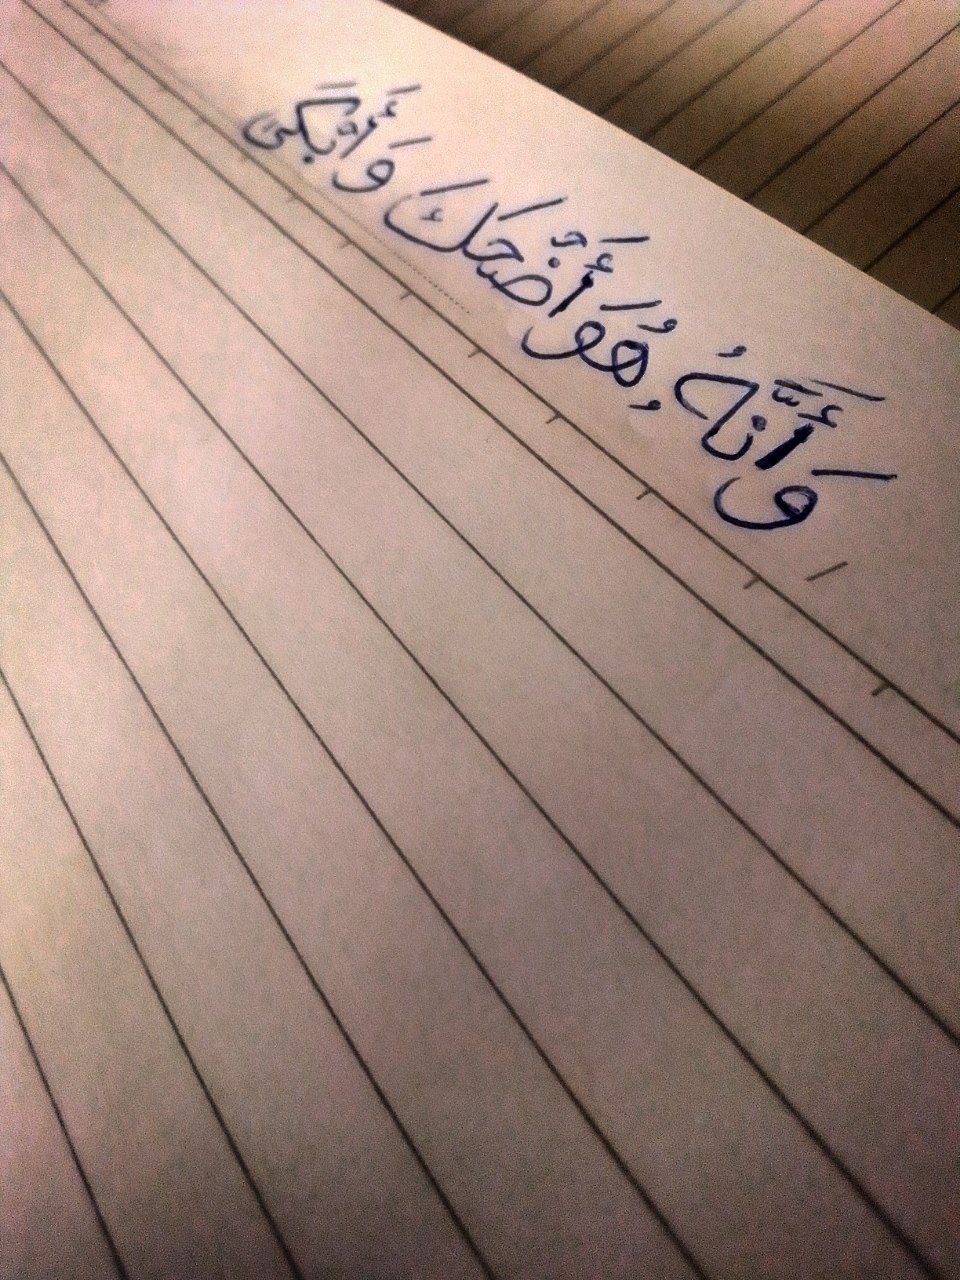 وَأَنَّهُۥ هُوَ أَضۡحَكَ وَأَبۡكَىٰ